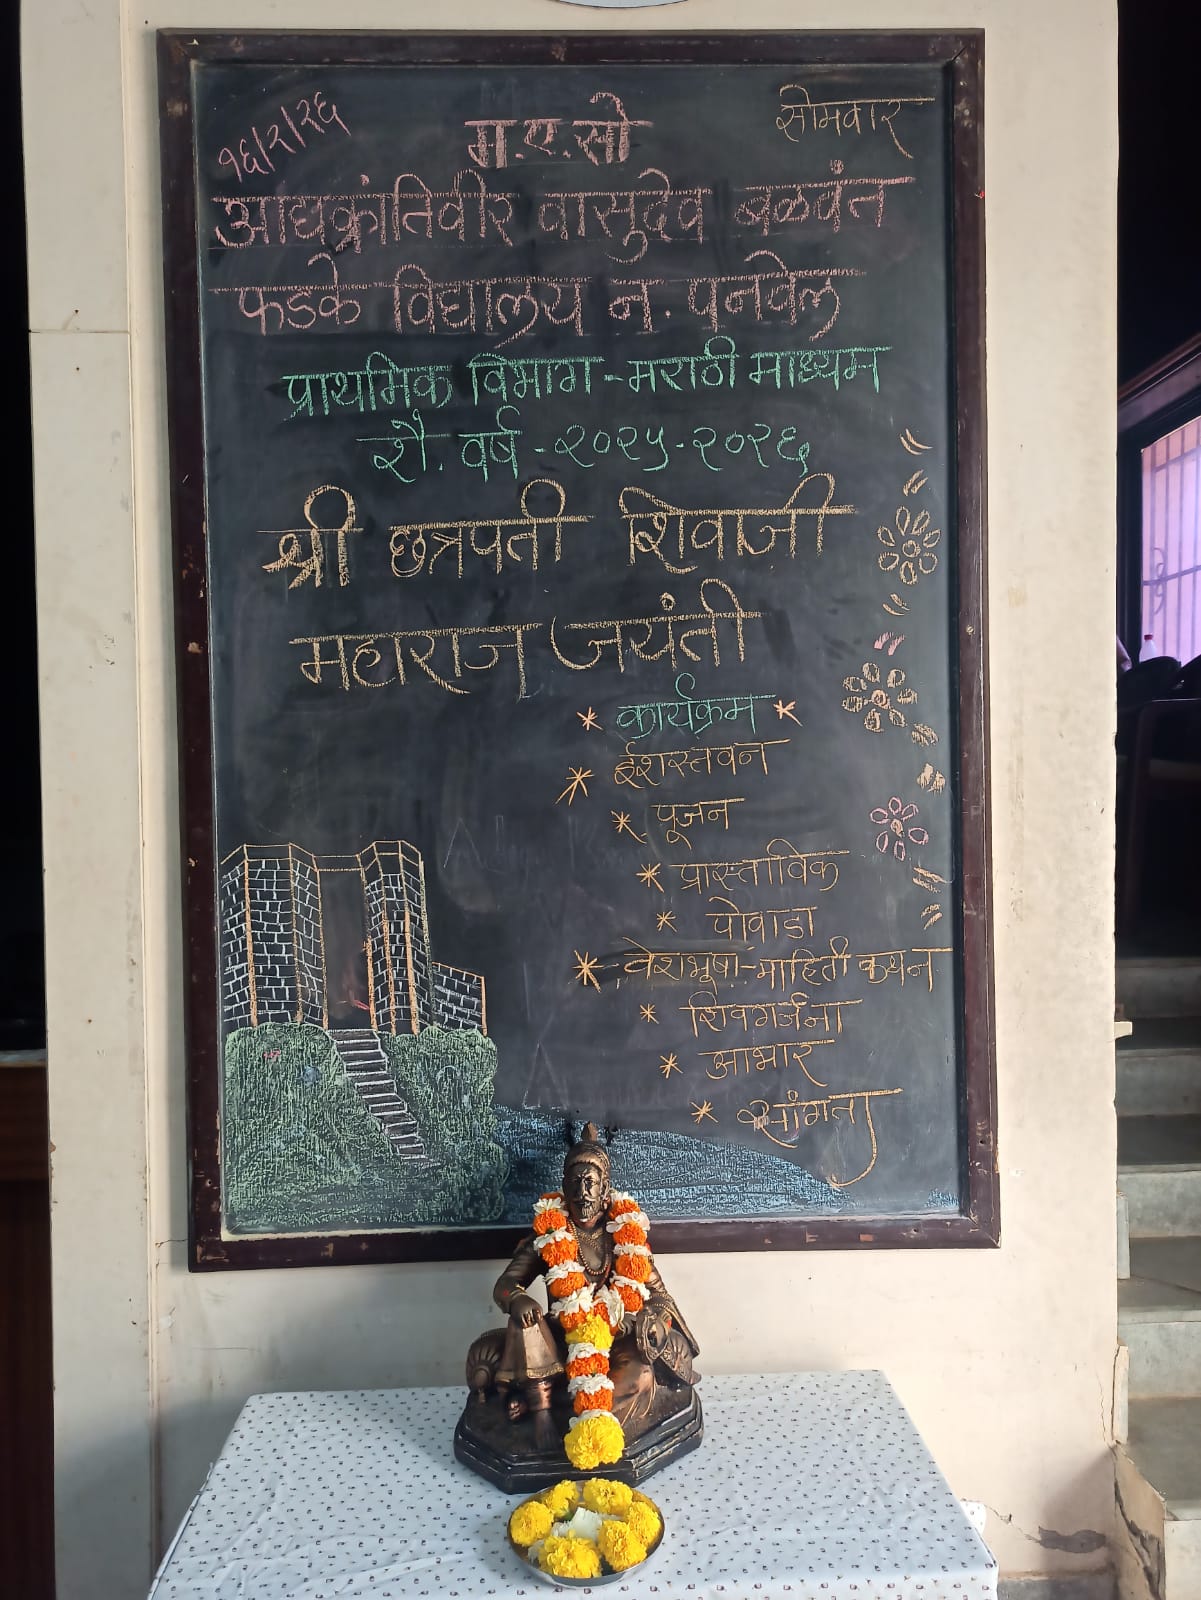 १६/२/२६
सोमवार
म.ए.सो
आद्यक्रांतिवीर वासुदेव बळवंत
फडके विद्यालय न. पनवेल
प्राथमिक विभाग - मराठी माध्यम
शै. वर्ष - २०२५-२०२६
श्री छत्रपती शिवाजी
महाराज जयंती
* कार्यक्रम *
* ईशस्तवन
* पूजन
* प्रास्ताविक
* पोवाडा
* वेशभूषा-माहिती कथन
* शिवगर्जना
* आभार
* सांगता